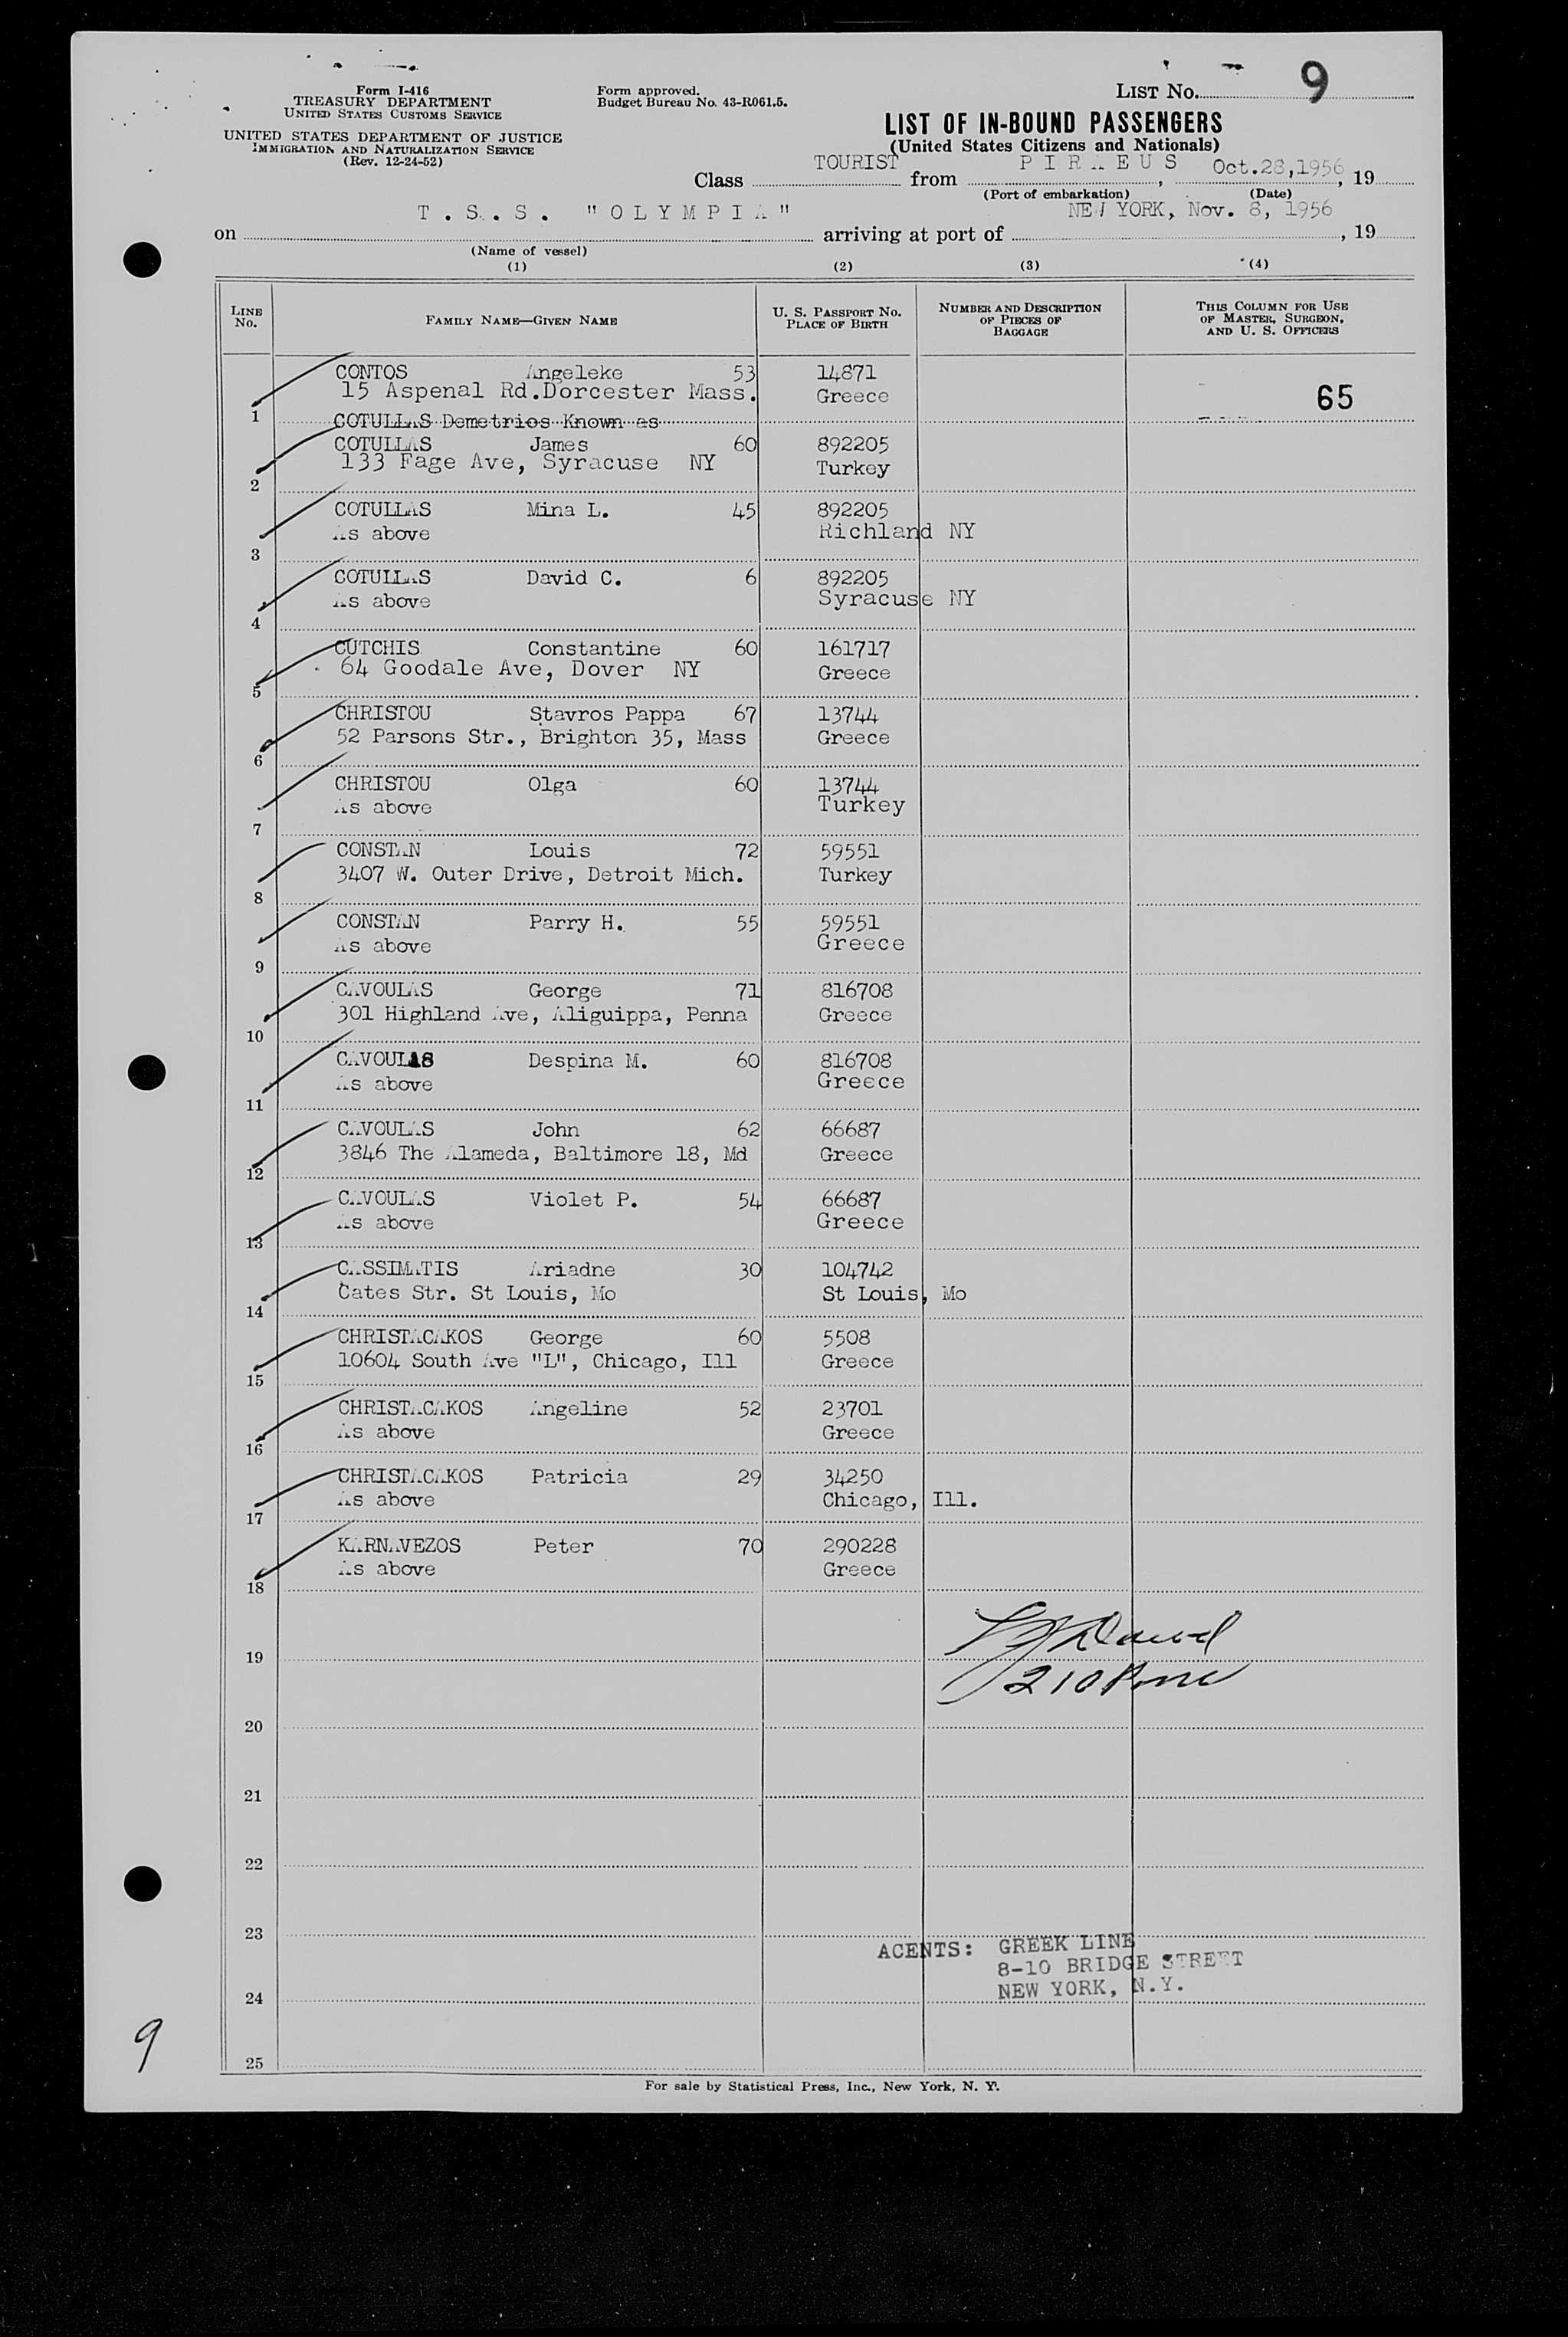 LIST No. 9
Form I-416
TREASURY DEPARTMENT
UNITED STATES CUSTOMS SERVICE
UNITED STATES DEPARTMENT OF JUSTICE
IMMIGRATION AND NATURALIZATION SERVICE
(Rev. 12-24-52)
Form approved.
Budget Bureau No. 43-R061.5.
LIST OF IN-BOUND PASSENGERS
(United States Citizens and Nationals)
Class TOURIST from PIRAEUS, Oct.28,1956, 19
(Port of embarkation) (Date)
on T.S.S. "OLYMPIA" arriving at port of NEW YORK, Nov. 8, 1956, 19
(Name of vessel)
(1) (2) (3) (4)
LINE No. FAMILY NAME—GIVEN NAME U. S. PASSPORT NO. PLACE OF BIRTH NUMBER AND DESCRIPTION OF PIECES OF BAGGAGE THIS COLUMN FOR USE OF MASTER, SURGEON, AND U. S. OFFICERS
CONTOS Angeleke 53 14871
15 Aspenal Rd.Dorcester Mass. Greece 65
1
COTULLAS Demetrios Known as
COTULLAS James 60 892205
133 Fage Ave, Syracuse NY Turkey
2
COTULLAS Mina L. 45 892205
As above Richland NY
3
COTULLAS David C. 6 892205
As above Syracuse NY
4
CUTCHIS Constantine 60 161717
64 Goodale Ave, Dover NY Greece
5
CHRISTOU Stavros Pappa 67 13744
52 Parsons Str., Brighton 35, Mass Greece
6
CHRISTOU Olga 60 13744
As above Turkey
7
CONSTAN Louis 72 59551
3407 W. Outer Drive, Detroit Mich. Turkey
8
CONSTAN Parry H. 55 59551
As above Greece
9
CAVOULAS George 71 816708
301 Highland Ave, Aliguippa, Penna Greece
10
CAVOULAS Despina M. 60 816708
As above Greece
11
CAVOULAS John 62 66687
3846 The Alameda, Baltimore 18, Md Greece
12
CAVOULAS Violet P. 54 66687
As above Greece
13
CASSIMATIS Ariadne 30 104742
Cates Str. St Louis, Mo St Louis, Mo
14
CHRISTACAKOS George 60 5508
10604 South Ave "L", Chicago, Ill Greece
15
CHRISTACAKOS Angeline 52 23701
As above Greece
16
CHRISTACAKOS Patricia 29 34250
As above Chicago, Ill.
17
KARNAVEZOS Peter 70 290228
As above Greece
18
19
210
20
21
22
23
AGENTS: GREEK LINE
8-10 BRIDGE STREET
NEW YORK, N.Y.
24
9
25
For sale by Statistical Press, Inc., New York, N. Y.